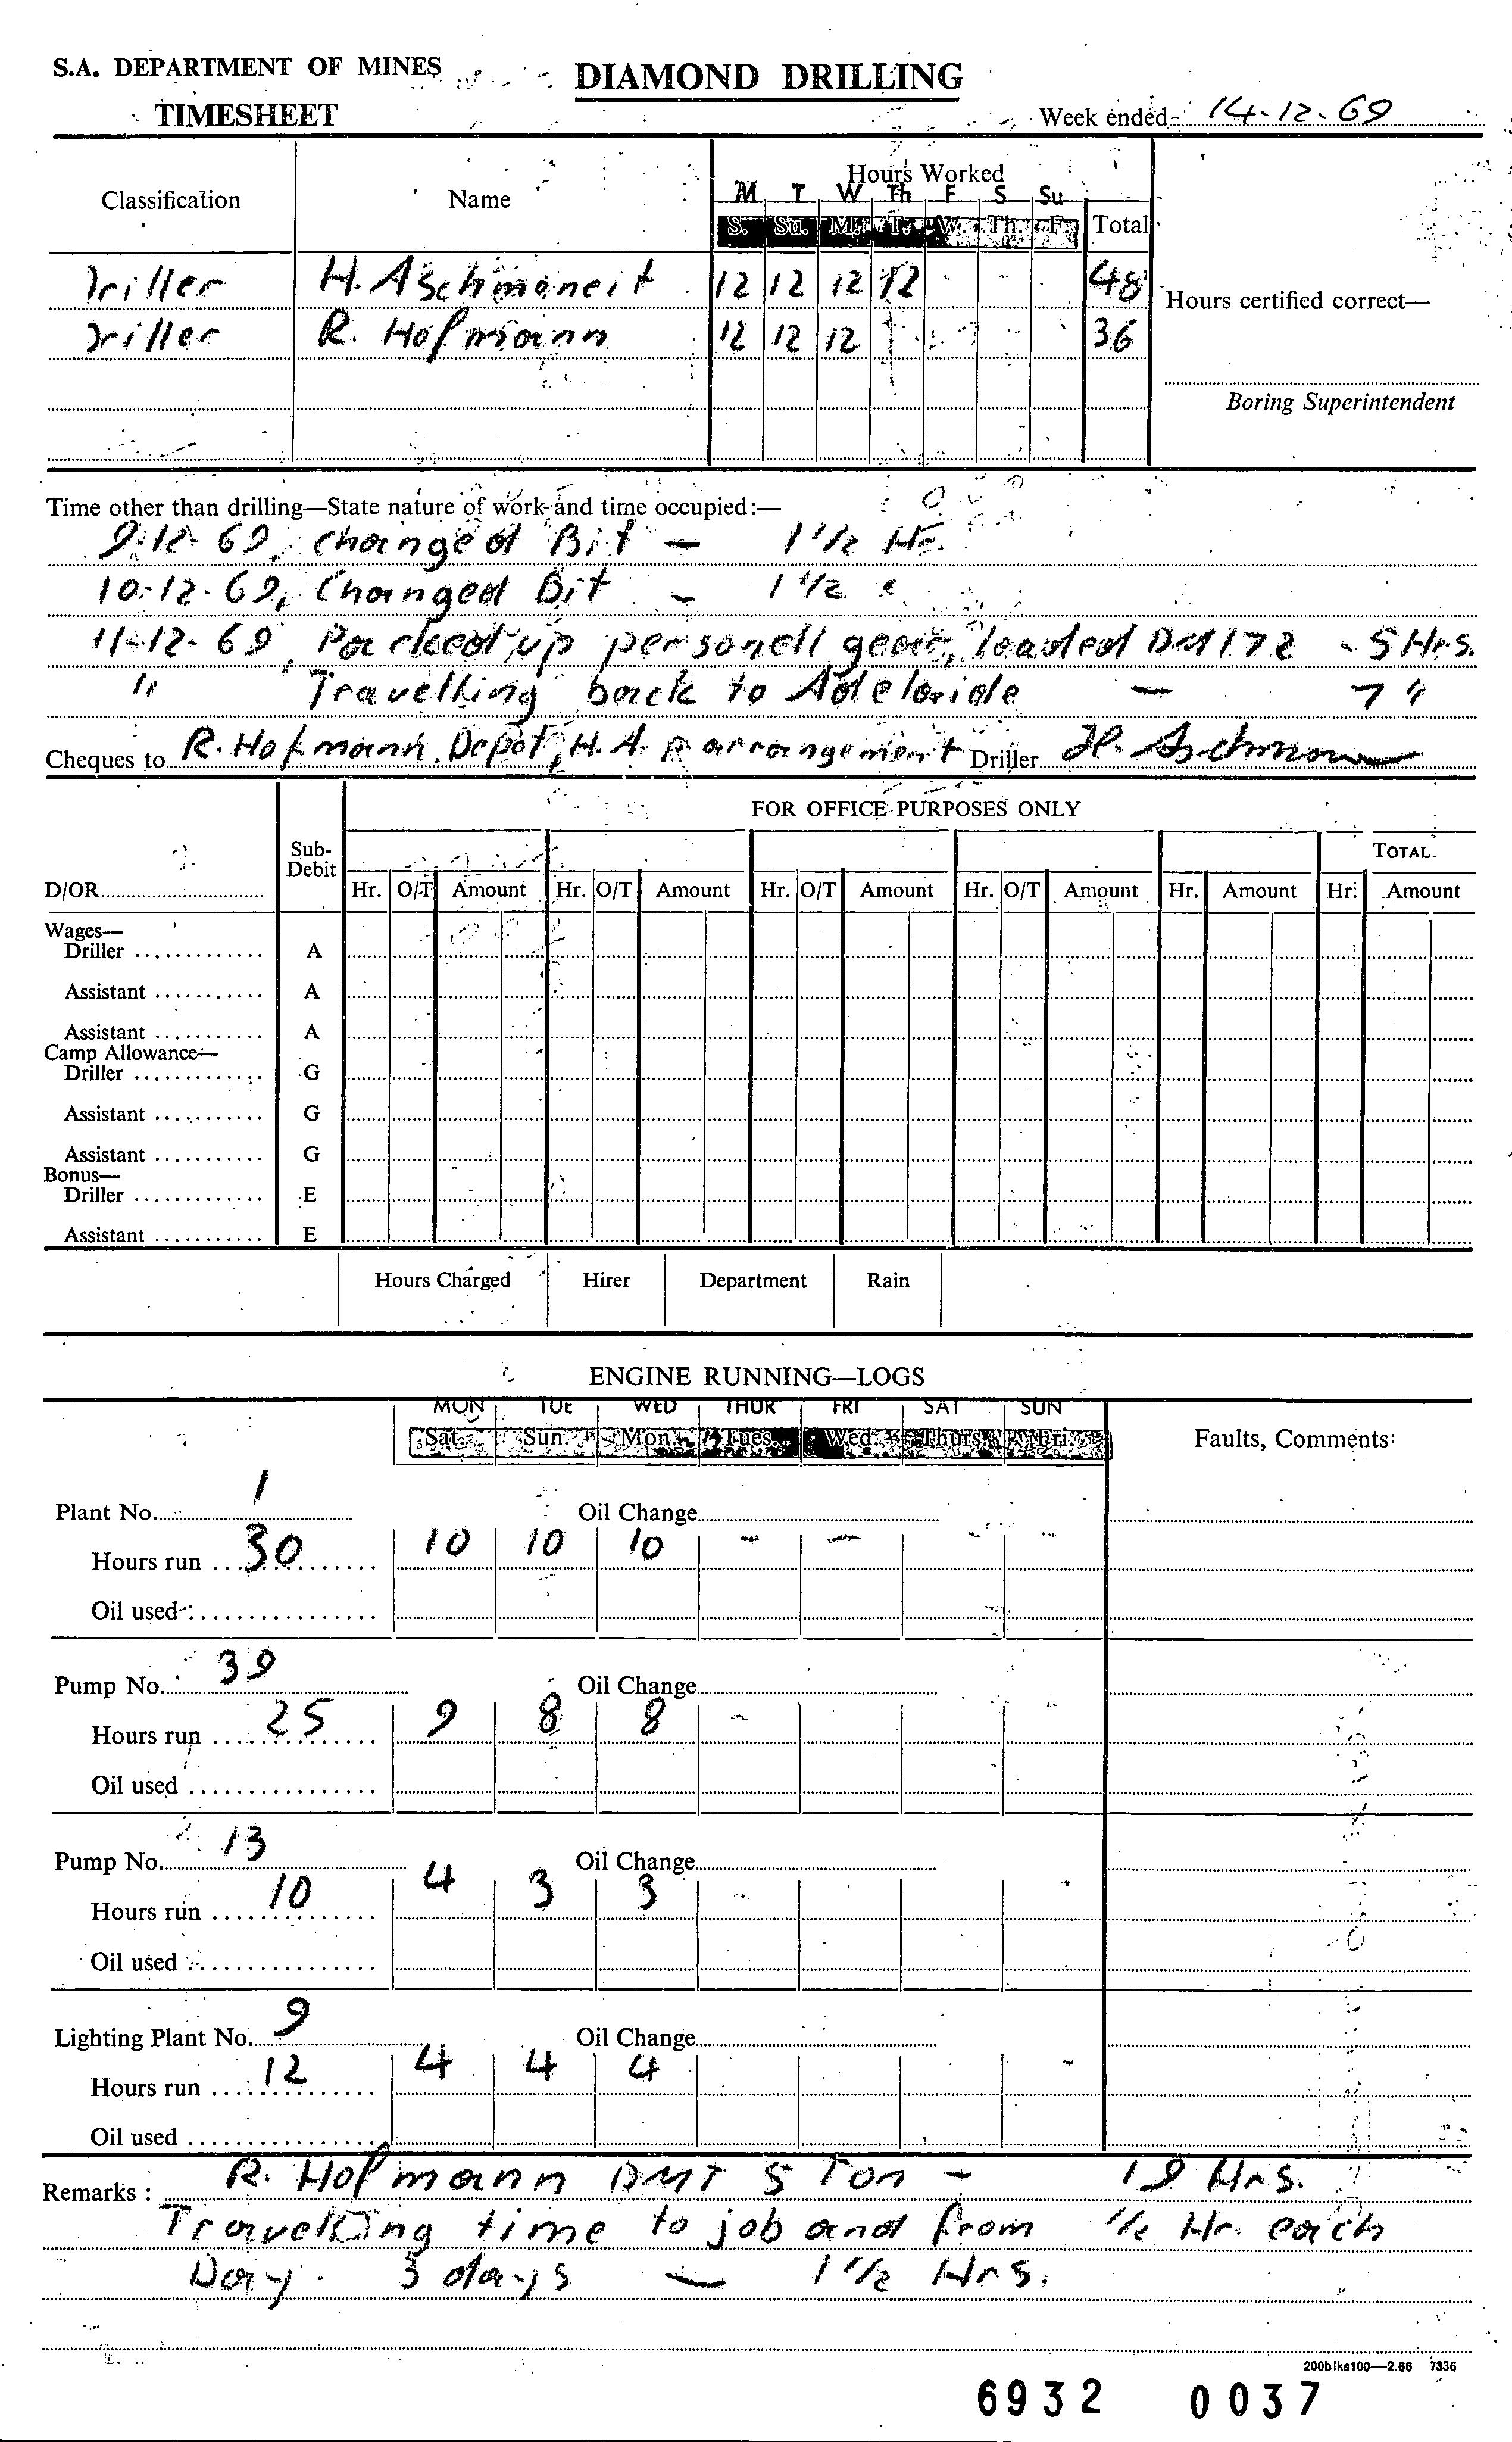 S.A. DEPARTMENT OF MINES
DIAMOND DRILLING
TIMESHEET
Week ended 14-12-69
Classification Name Hours Worked
M T W Th F S Su
S. Su. M. T. W. Th. F. Total
Driller H. Aschmoneit 12 12 12 12 - - - 48
Driller R. Hofmann 12 12 12 36
Hours certified correct—
Boring Superintendent
Time other than drilling—State nature of work and time occupied:—
9-12-69, changed Bit - 1 1/2 Hr.
10-12-69, Changed Bit - 1 1/2 "
11-12-69, Packed up personell gear, loaded DM172 - 5 Hrs.
" Travelling back to Adelaide - 7 "
Cheques to R. Hofmann. Depot, H. A. p arrangement Driller H. Aschmon
FOR OFFICE PURPOSES ONLY
Sub-Debit
TOTAL
D/OR Hr. O/T Amount Hr. O/T Amount Hr. O/T Amount Hr. O/T Amount Hr. Amount Hr. Amount
Wages—
Driller A
Assistant A
Assistant A
Camp Allowance—
Driller G
Assistant G
Assistant G
Bonus—
Driller E
Assistant E
Hours Charged Hirer Department Rain
ENGINE RUNNING—LOGS
MON TUE WED THUR FRI SAT SUN
Sat. Sun. Mon. Tues. Wed. Thurs. Fri. Faults, Comments:
Plant No. 1 Oil Change
Hours run 30 10 10 10 - - - -
Oil used
Pump No. 39 Oil Change
Hours run 25 9 8 8 -
Oil used
Pump No. 13 Oil Change
Hours run 10 4 3 3
Oil used
Lighting Plant No. 9 Oil Change
Hours run 12 4 4 4
Oil used
Remarks: R. Hofmann DMT 5 Ton - 19 Hrs.
Travelling time to job and from 1/2 Hr. each
Day. 3 days - 1 1/2 Hrs.
200blks100—2.66 7336
6932 0037